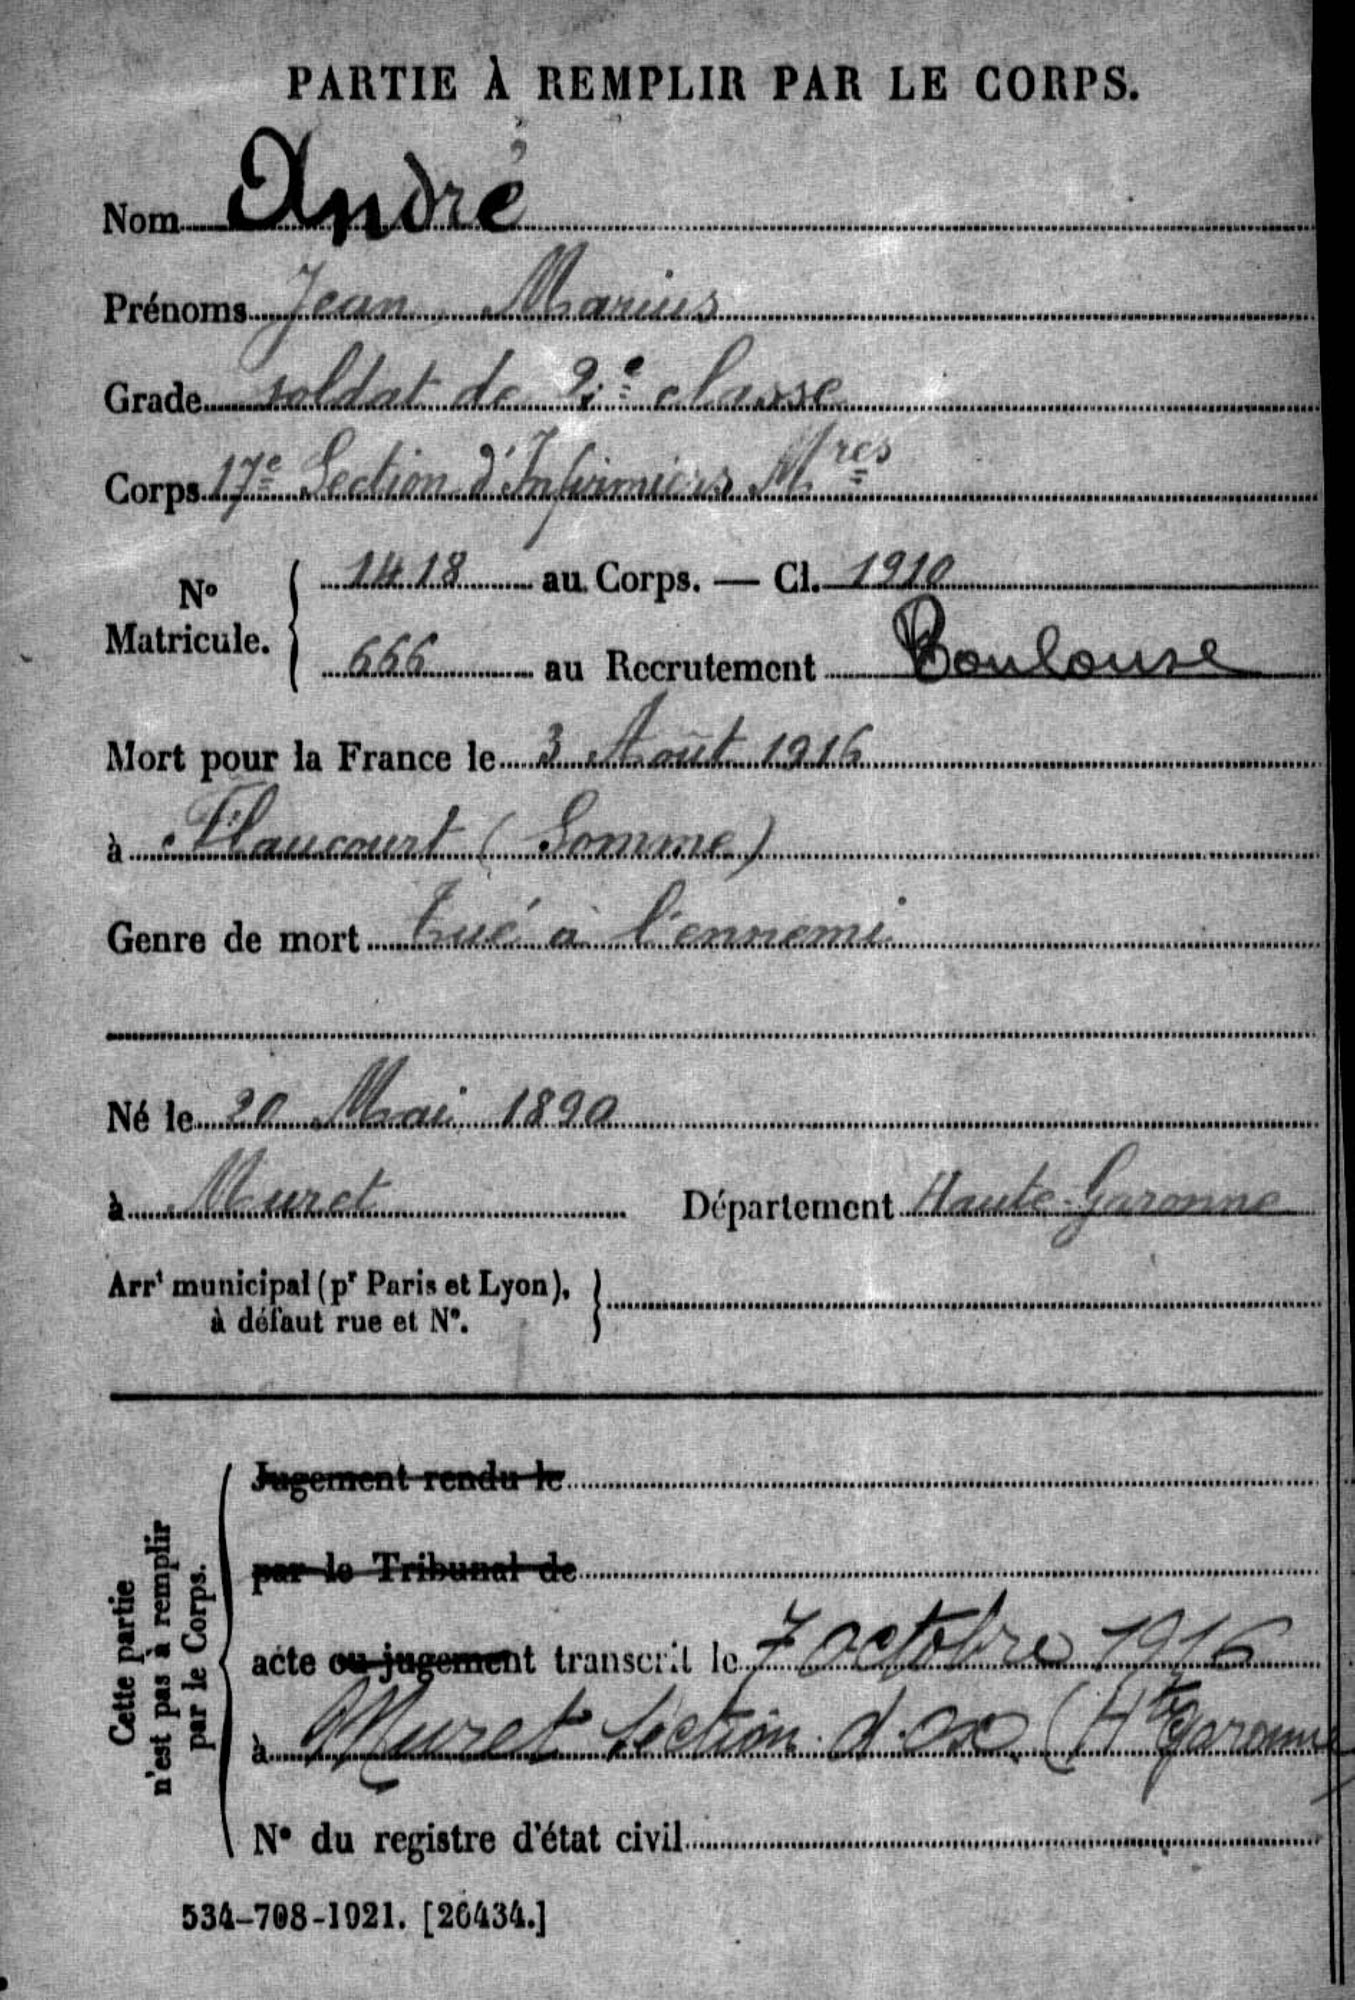 PARTIE À REMPLIR PAR LE CORPS.
Nom André
Prénoms Jean Marius
Grade soldat de 2e classe
Corps 17e Section d'Infirmiers Mres
No Matricule. 1418 au Corps. — Cl. 1910
666 au Recrutement Toulouse
Mort pour la France le 3 Août 1916
à Flaucourt (Somme)
Genre de mort tué à l'ennemi
Né le 20 Mai 1890
à Muret Département Haute-Garonne
Arrt municipal (pr Paris et Lyon),
à défaut rue et No.
Cette partie
n'est pas à remplir
par le Corps.
Jugement rendu le
par le Tribunal de
acte ou jugement transcrit le 7 octobre 1916
à Muret section d'ox (Hte Garonne
No du registre d'état civil
534-708-1921. [26434.]